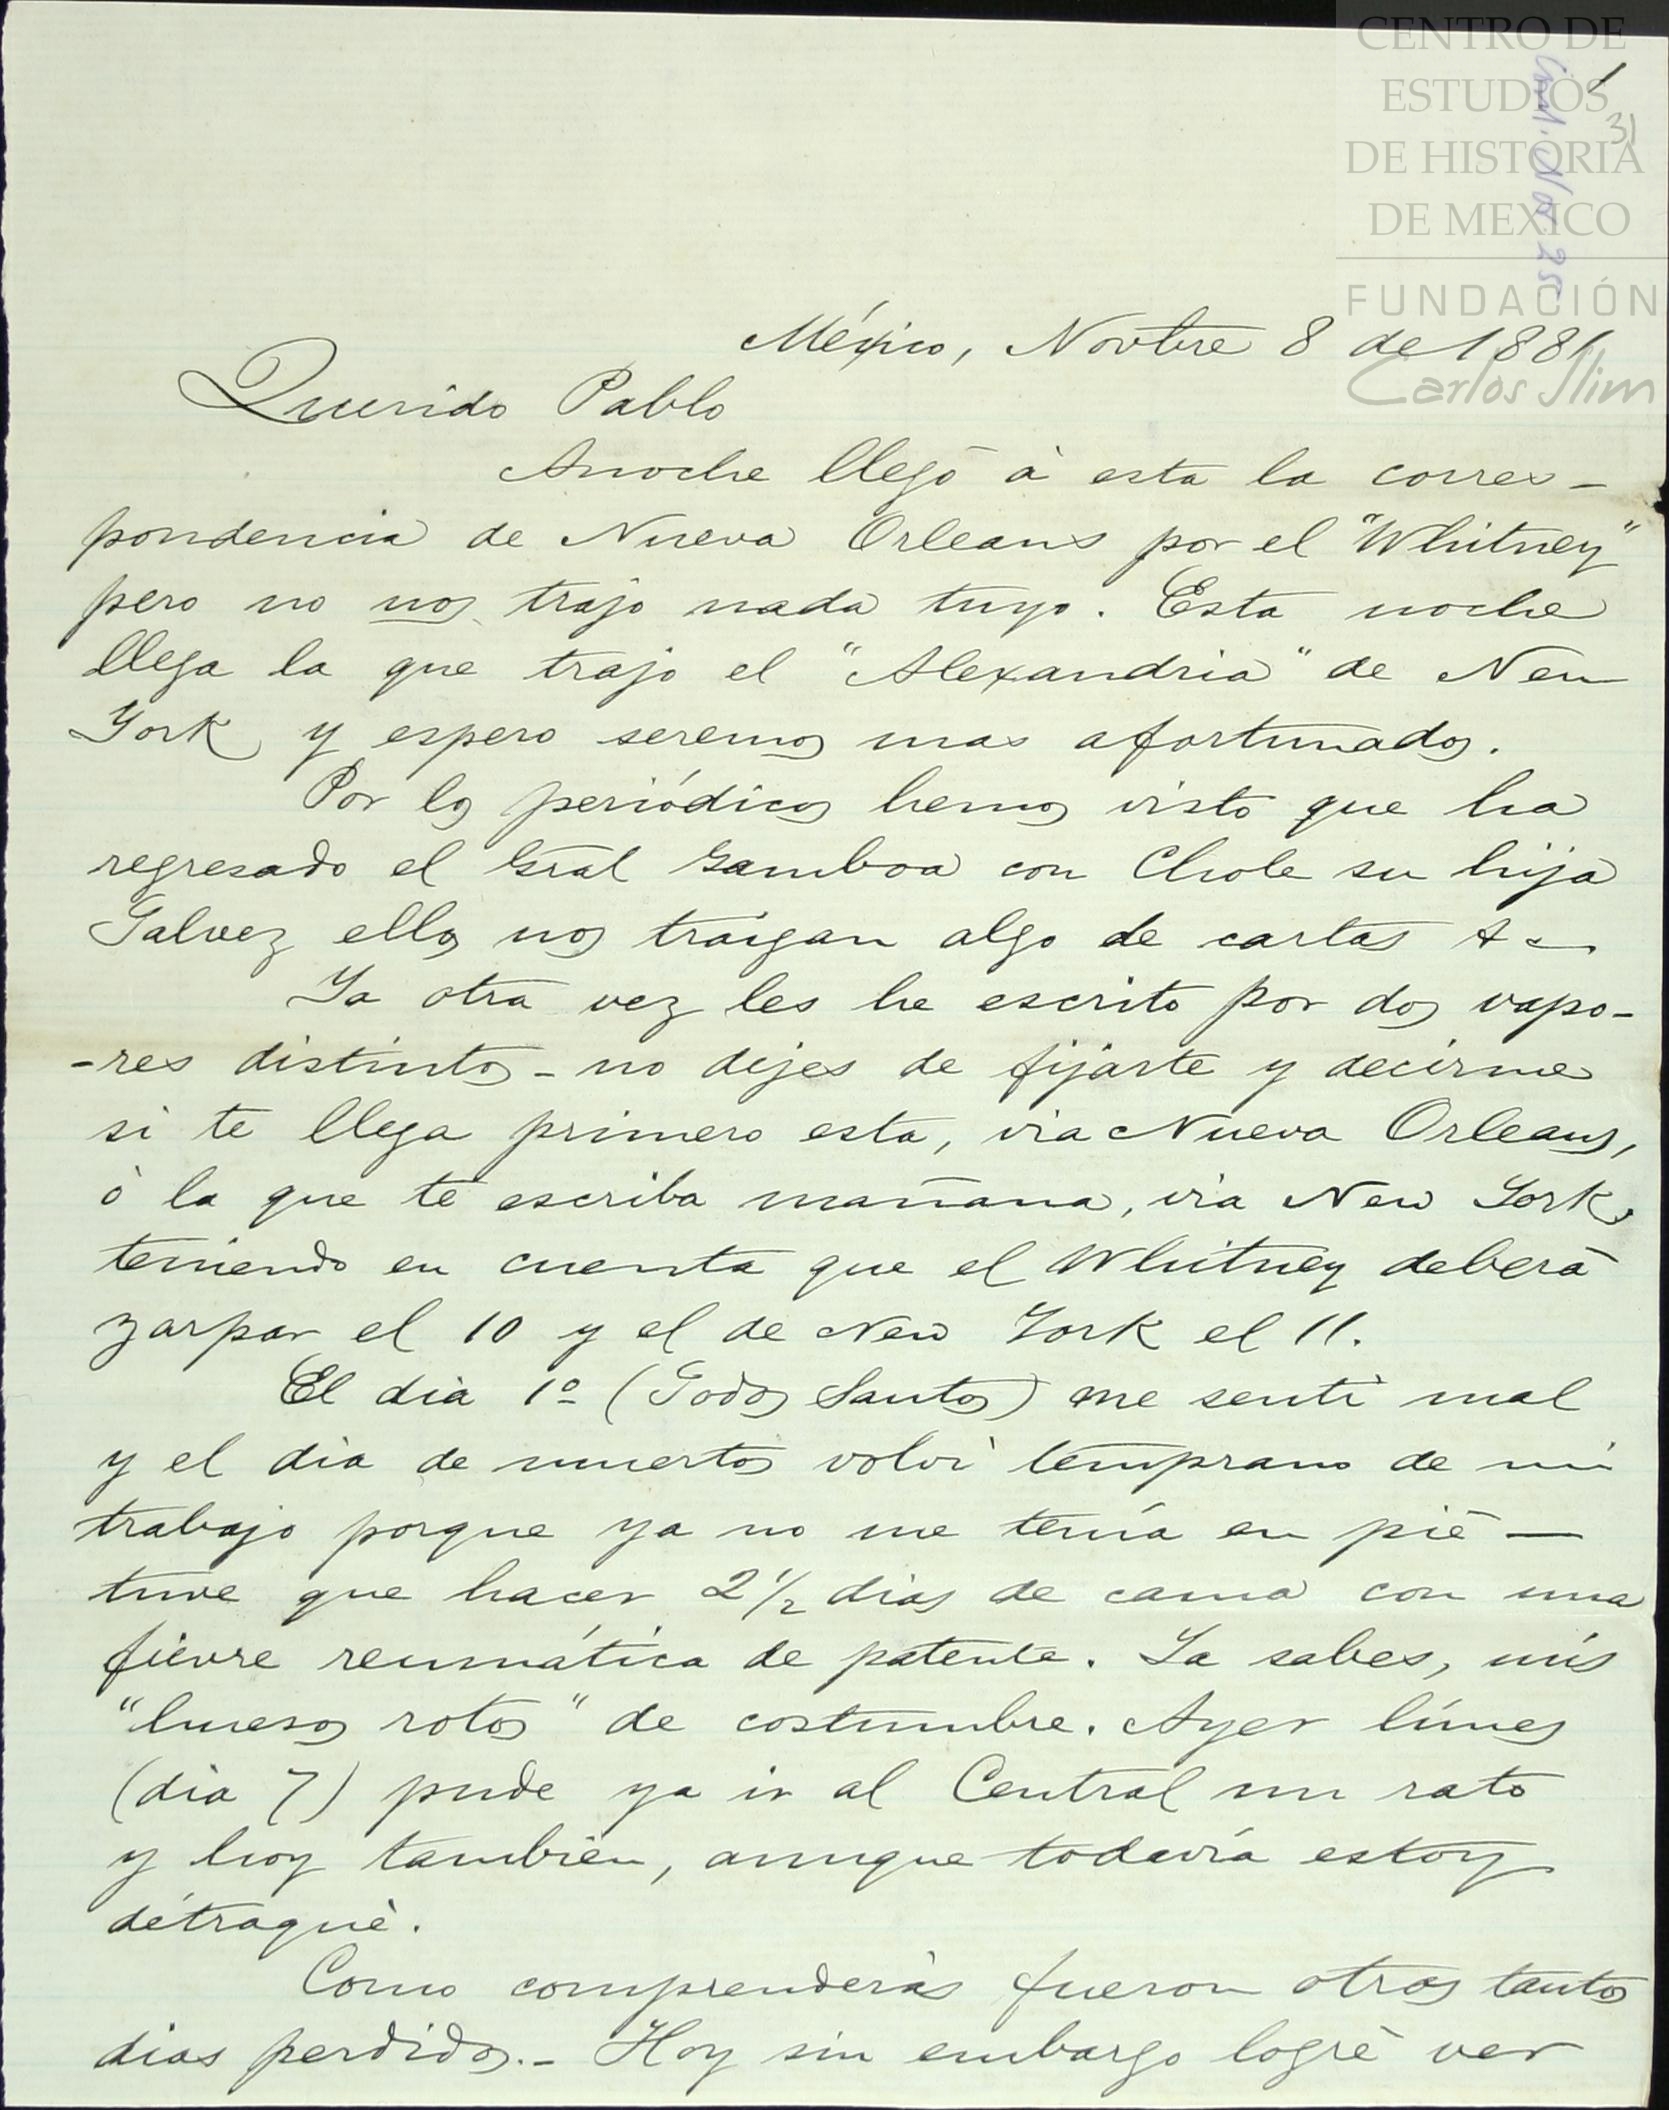 CENTRO DE
ESTUDIOS
DE HISTORIA
DE MEXICO
FUNDACIÓN
Carlos Slim
1
31
Cont. Nov 25
México, Novbre 8 de 1881
Querido Pablo
Anoche llegó à esta la corres-
pondencia de Nueva Orleans por el "Whitney"
pero no nos trajo nada tuyo. Esta noche
llega la que trajo el "Alexandria" de New
York y espero seremos mas afortunados.
Por los periódicos hemos visto que ha
regresado el Gral Gamboa con Chole su hija
Talvez ellos nos traigan algo de cartas &c.
Ya otra vez les he escrito por dos vapo-
-res distintos - no dejes de fijarte y decirme
si te llega primero esta, via Nueva Orleans,
ò la que te escriba mañana, via New York,
teniendo en cuenta que el Whitney deberá
zarpar el 10 y el de New York el 11.
El dia 1º (Todos Santos) me sentì mal
y el dia de muertos volvì temprano de mi
trabajo porque ya no me tenía en pié —
tuve que hacer 2½ dias de cama con una
fievre reumática de patente. Ya sabes, mis
"huesos rotos" de costumbre. Ayer lúnes
(dia 7) pude ya ir al Central un rato
y hoy tambien, aunque todavía estoy
détraqué.
Como comprenderàs fueron otros tantos
dias perdidos.- Hoy sin embargo logrè ver